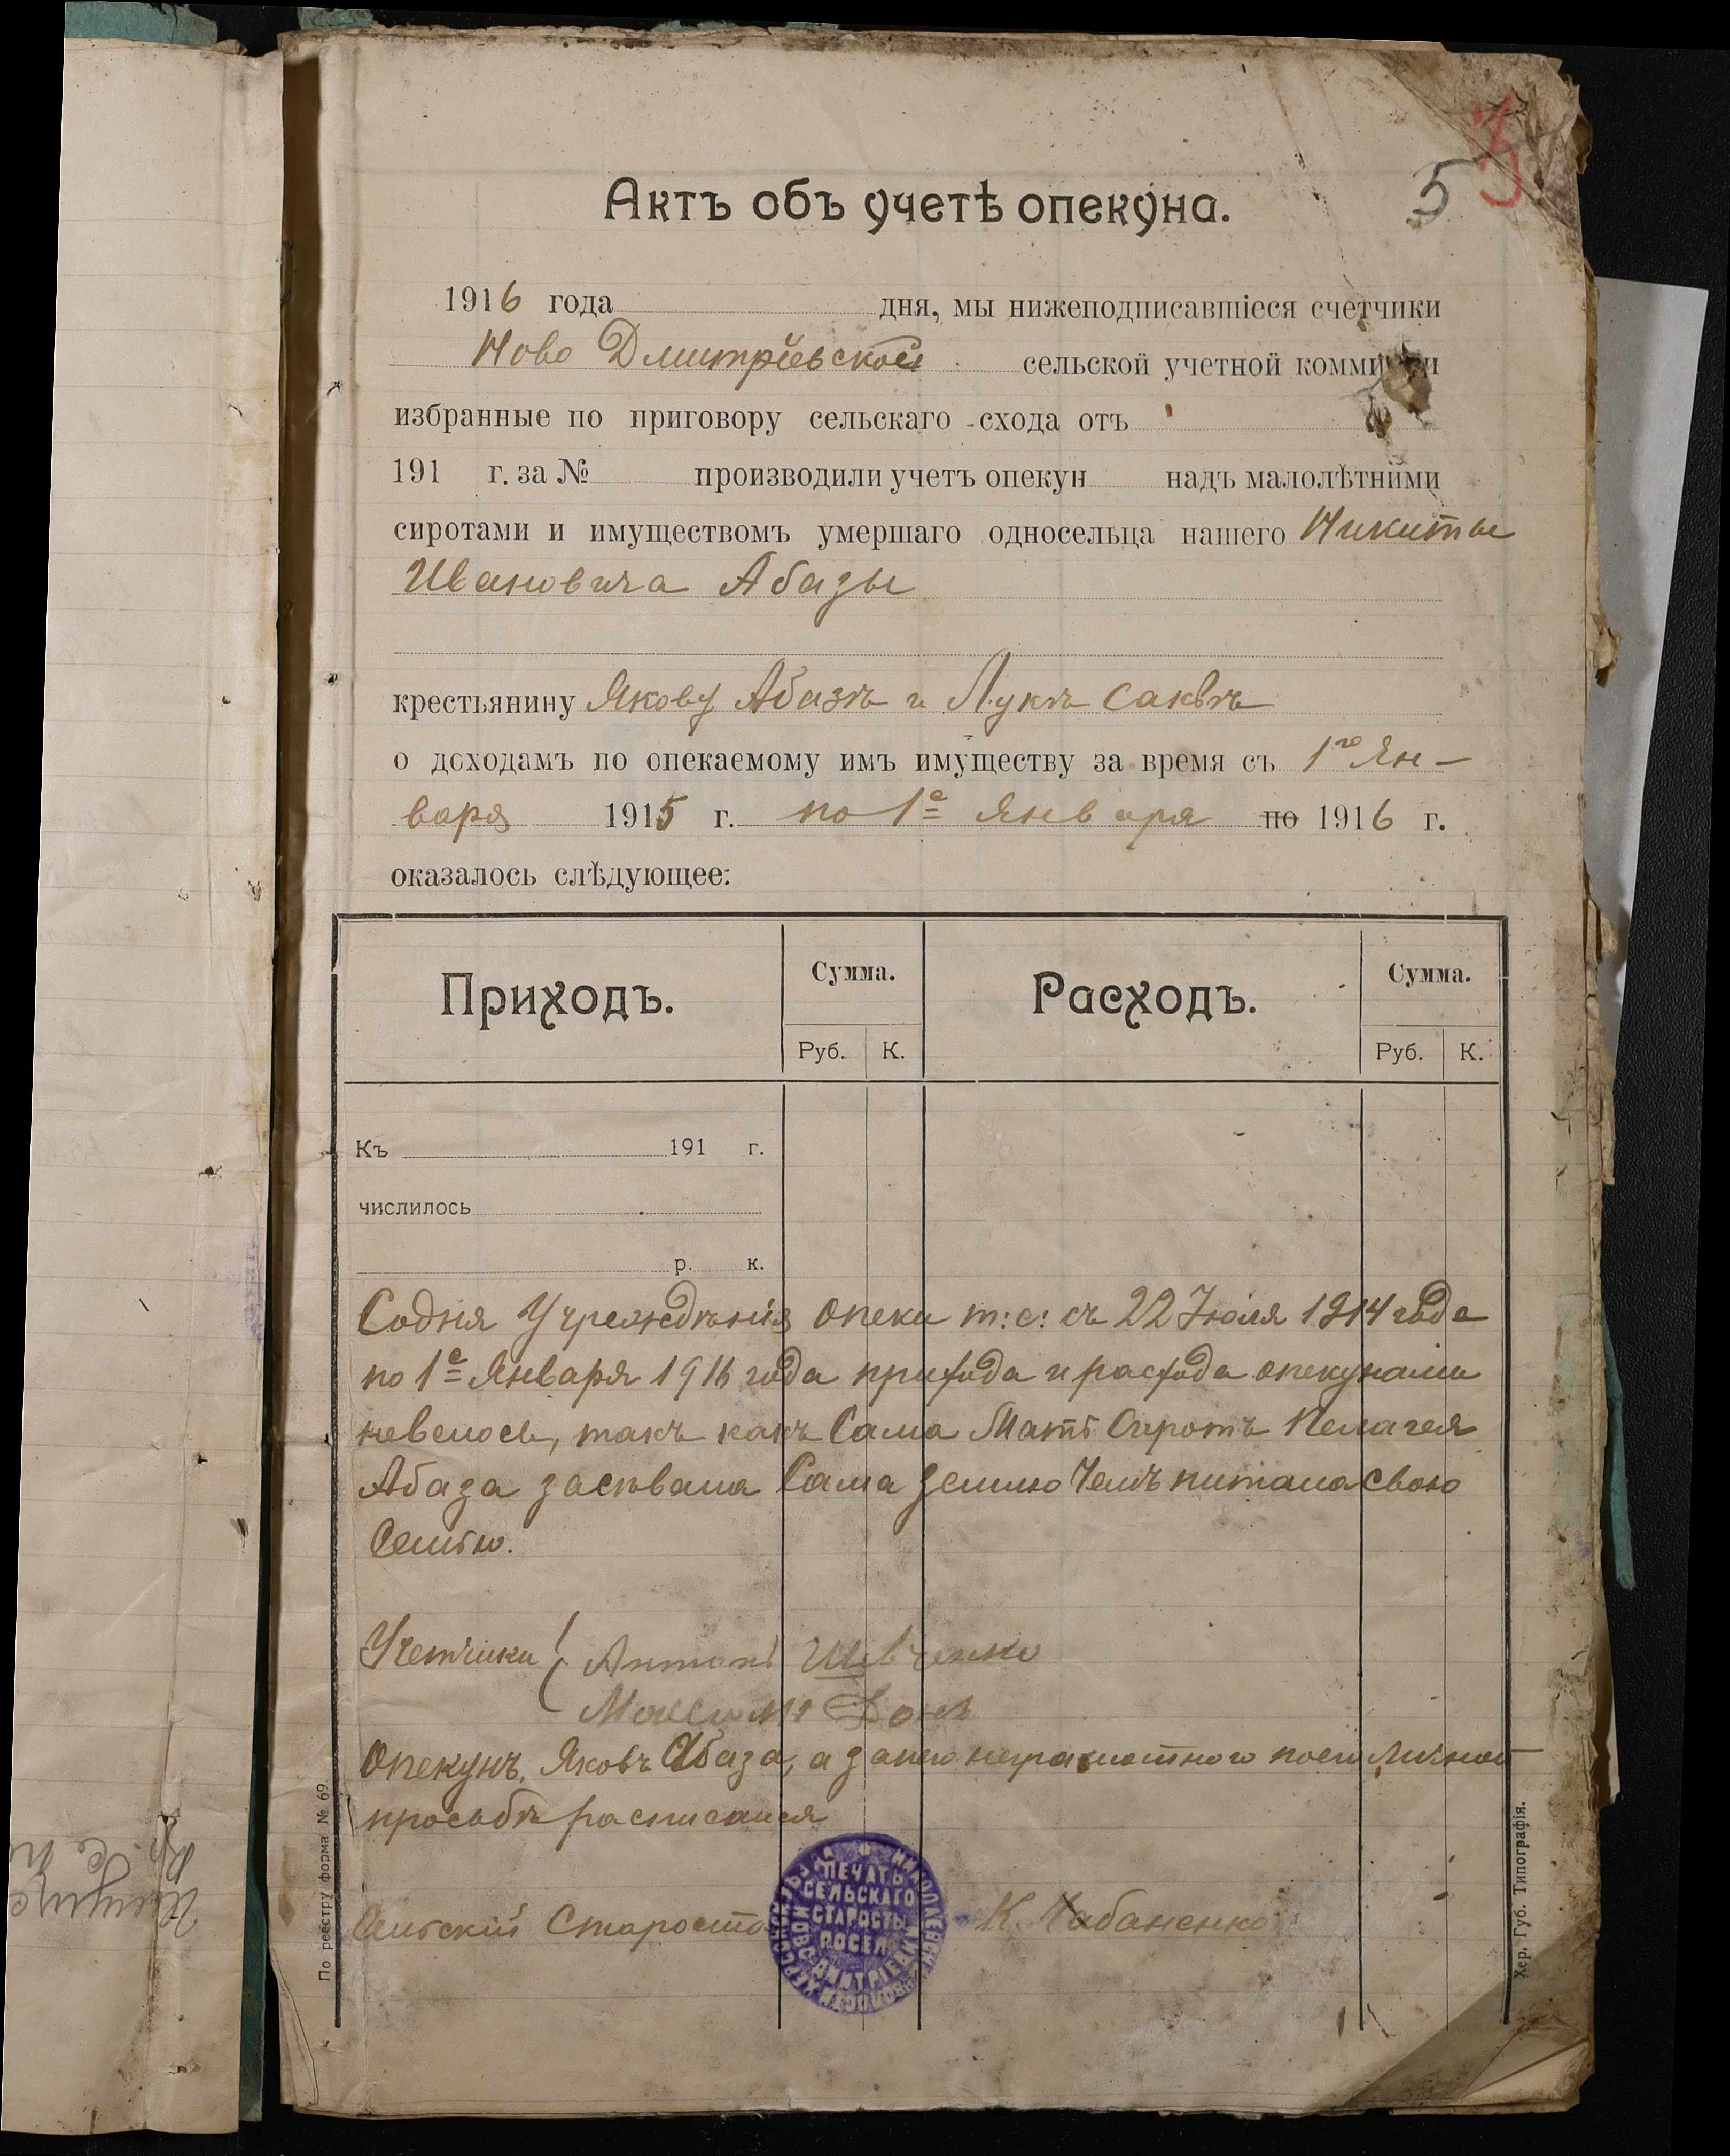 5 3
Актъ объ учетѣ опекуна.
1916 года дня, мы нижеподписавшіеся счетчики
Ново Дмитріевской сельской учетной коммиссіи
избранные по приговору сельскаго схода отъ
191 г. за № производили учетъ опекун надъ малолѣтними
сиротами и имуществомъ умершаго односельца нашего Никиты
Ивановича Абазы
крестьянину Якову Абазѣ и Лукѣ Саквѣ
о доходамъ по опекаемому имъ имуществу за время съ 1го Ян-
варя 1915 г. по 1е Января по 1916 г.
оказалось слѣдующее:
Приходъ. Сумма. Расходъ. Сумма.
Руб. К. Руб. К.
Къ 191 г.
числилось
р. к.
Содня Учрежденія опеки т:е: съ 22 Іюля 1914 года
по 1е Января 1916 года прихода и расхода опекунами
невелось, такъ какъ Сама Мать Сиротъ Пелагея
Абаза засѣвала Сама землю Чемъ питала свою
Семью.
Учетчики Антонъ Шевченко
Опекунъ, Яковъ Абаза, а занего неграмотного поего личной
просьбѣ расписался
Сельскій Староста К. Чабаненко
ПЕЧАТЬ
СЕЛЬСКАГО
СТАРОСТЫ
ПОСЕЛ
По реестру форма № 69
Хер. Губ. Типографія.